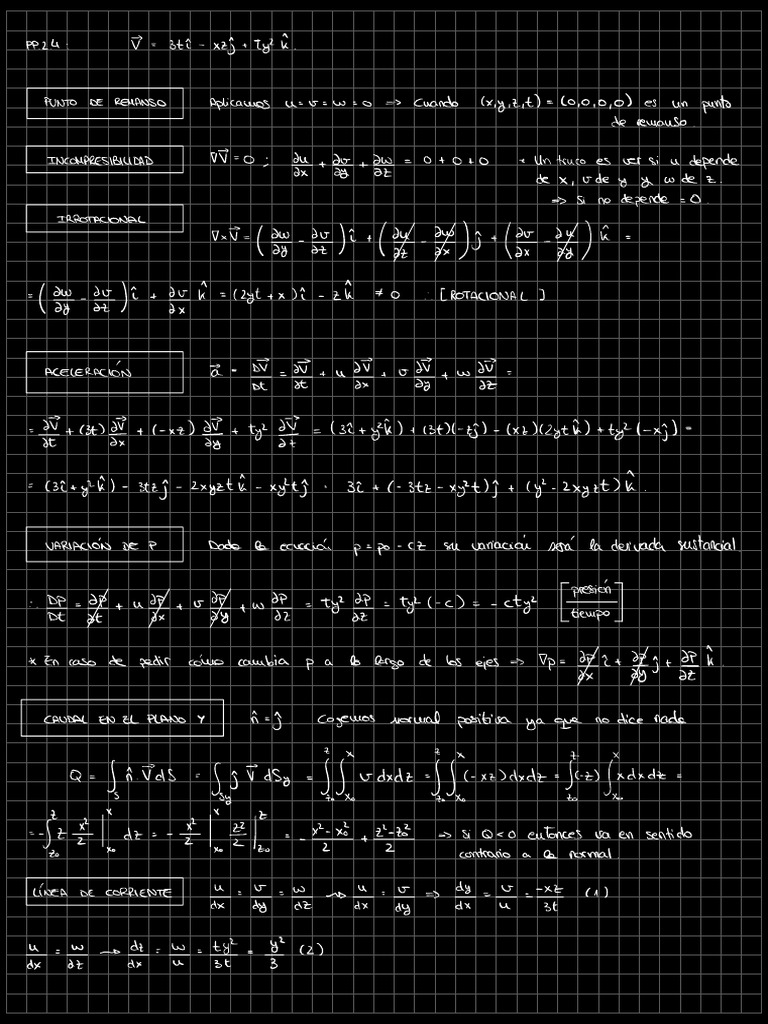 PP.24: V⃗ = 3tî - xzĵ + ty² k̂.
PUNTO DE REMANSO Aplicamos u = v = w = 0 → Cuando (x,y,z,t) = (0,0,0,0) es un punto
de remanso.
INCOMPRESIBILIDAD ∇V⃗ = 0 ; ∂u/∂x + ∂v/∂y + ∂w/∂z = 0 + 0 + 0 * Un truco es ver si u depende
de x, v de y y w de z.
⇒ si no depende = 0.
IRROTACIONAL
∇×V⃗ = (∂w/∂y - ∂v/∂z) î + (∂u/∂z - ∂w/∂x) ĵ + (∂v/∂x - ∂u/∂y) k̂ =
= (∂w/∂y - ∂v/∂z) î + ∂v/∂x k̂ = (2yt + x) î - z k̂ ≠ 0 ∴ [ROTACIONAL]
ACELERACIÓN a⃗ = DV⃗/Dt = ∂V⃗/∂t + u ∂V⃗/∂x + v ∂V⃗/∂y + w ∂V⃗/∂z =
= ∂V⃗/∂t + (3t) ∂V⃗/∂x + (-xz) ∂V⃗/∂y + ty² ∂V⃗/∂z = (3î + y²k̂) + (3t)(-zĵ) - (xz)(2yt k̂) + ty²(-xĵ) =
= (3î + y²k̂) - 3tzĵ - 2xyzt k̂ - xy²tĵ = 3î + (-3tz - xy²t)ĵ + (y² - 2xyzt) k̂.
VARIACIÓN DE P Dada la ecuación p = p₀ - cz su variación será la derivada sustancial
∴ Dp/Dt = ∂p/∂t + u ∂p/∂x + v ∂p/∂y + w ∂p/∂z = ty² ∂p/∂z = ty²(-c) = -cty² [presión/tiempo]
* En caso de pedir cómo cambia p a lo largo de los ejes → ∇p = ∂p/∂x î + ∂p/∂y ĵ + ∂p/∂z k̂
CAUDAL EN EL PLANO Y n̂ = ĵ Cogemos normal positiva ya que no dice nada
Q = ∫_S n̂ V⃗ dS = ∫_Sy ĵ V⃗ dSy = ∫_z₀^z ∫_x₀^x v dxdz = ∫_z₀^z ∫_x₀^x (-xz) dxdz = ∫_z₀^z (-z) ∫_x₀^x x dxdz =
= -∫_z₀^z z x²/2 |_x₀^x dz = - x²/2 |_x₀^x z²/2 |_z₀^z = - x²-x₀²/2 + z²-z₀²/2 → si Q<0 entonces va en sentido
contrario a la normal.
LÍNEA DE CORRIENTE u/dx = v/dy = w/dz ⇝ u/dx = v/dy → dy/dx = v/u = -xz/3t (1)
u/dx = w/∂z ⇝ dz/dx = w/u = ty²/3t = y²/3 (2)